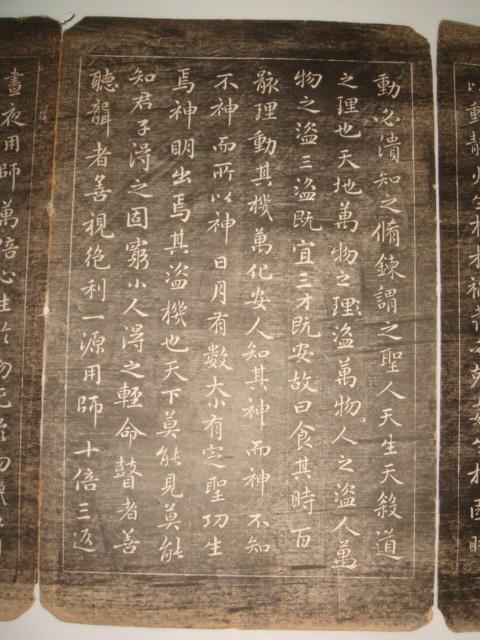 以動靜火生扵木禍發必尅姦生扵國時
動必潰知之脩鍊謂之聖人天生天殺道
之理也天地萬物之理盜萬物人之盜人萬
物之盜三盜既宜三才既安故曰食其時百
骸理動其機萬化安人知其神而神不知
不神而所以神日月有數大小有定聖功生
焉神明出焉其盜機也天下莫能見莫能
知君子得之固窮小人得之輕命瞽者善
聽聾者善視絕利一源用師十倍三返
晝夜用師萬倍心生扵物死扵物機在目